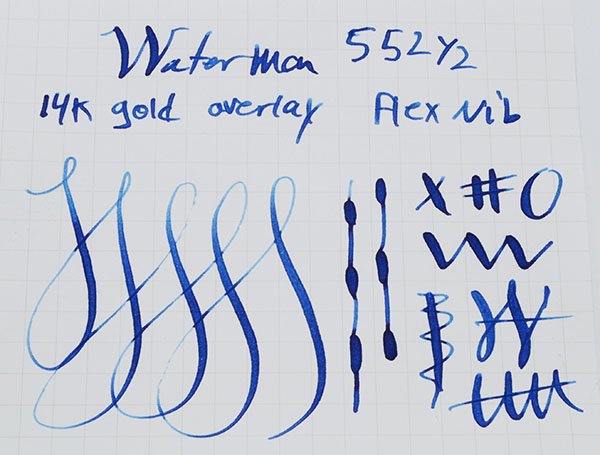 Waterman 552½
14K gold overlay Flex Nib
X # O
W